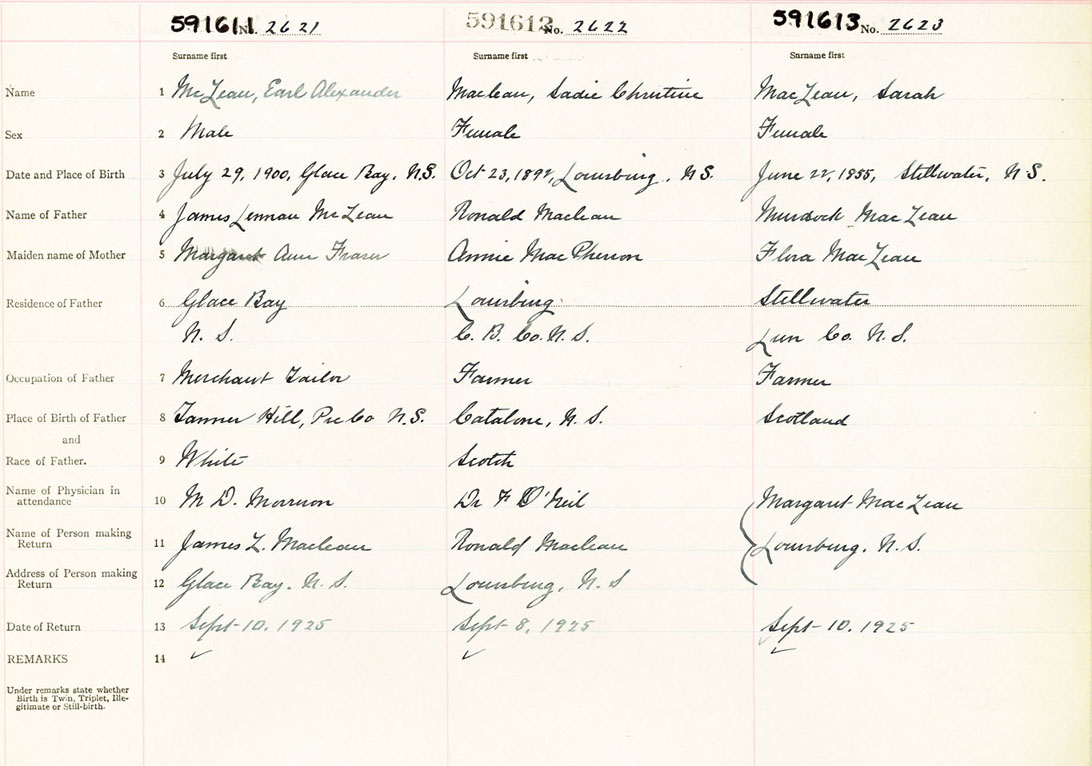 591611 No. 2621 591612 No. 2622 591613 No. 2623
Surname first Surname first Surname first
Name 1 McLean, Earl Alexander Maclean, Sadie Christine MacLean, Sarah
Sex 2 Male Female Female
Date and Place of Birth 3 July 29, 1900, Glace Bay, N.S. Oct 23, Louisburg, N.S. June 1855, Stillwater, N.S.
Name of Father 4 James Lennan McLean Ronald Maclean Murdock MacLean
Maiden name of Mother 5 Margaret Ann Fraser Annie MacPherson Flora MacLean
Residence of Father 6 Glace Bay Louisburg Stillwater
N. S. C. B. Co. N. S. Co. N. S.
Occupation of Father 7 Merchant Tailor Farmer Farmer
Place of Birth of Father 8 Hill, N.S. Catalone, N. S. Scotland
and
Race of Father. 9 White Scotch
Name of Physician in
attendance 10 M. D. Morrison Dr F O'Neil Margaret MacLean
Name of Person making
Return 11 James L. Maclean Ronald Maclean Louisburg, N. S.
Address of Person making
Return 12 Glace Bay. N. S. Louisburg, N. S
Date of Return 13 Sept-10. 1925 Sept 8, 1925 Sept-10. 1925
REMARKS 14
Under remarks state whether
Birth is Twin, Triplet, Ille-
gitimate or Still-birth.